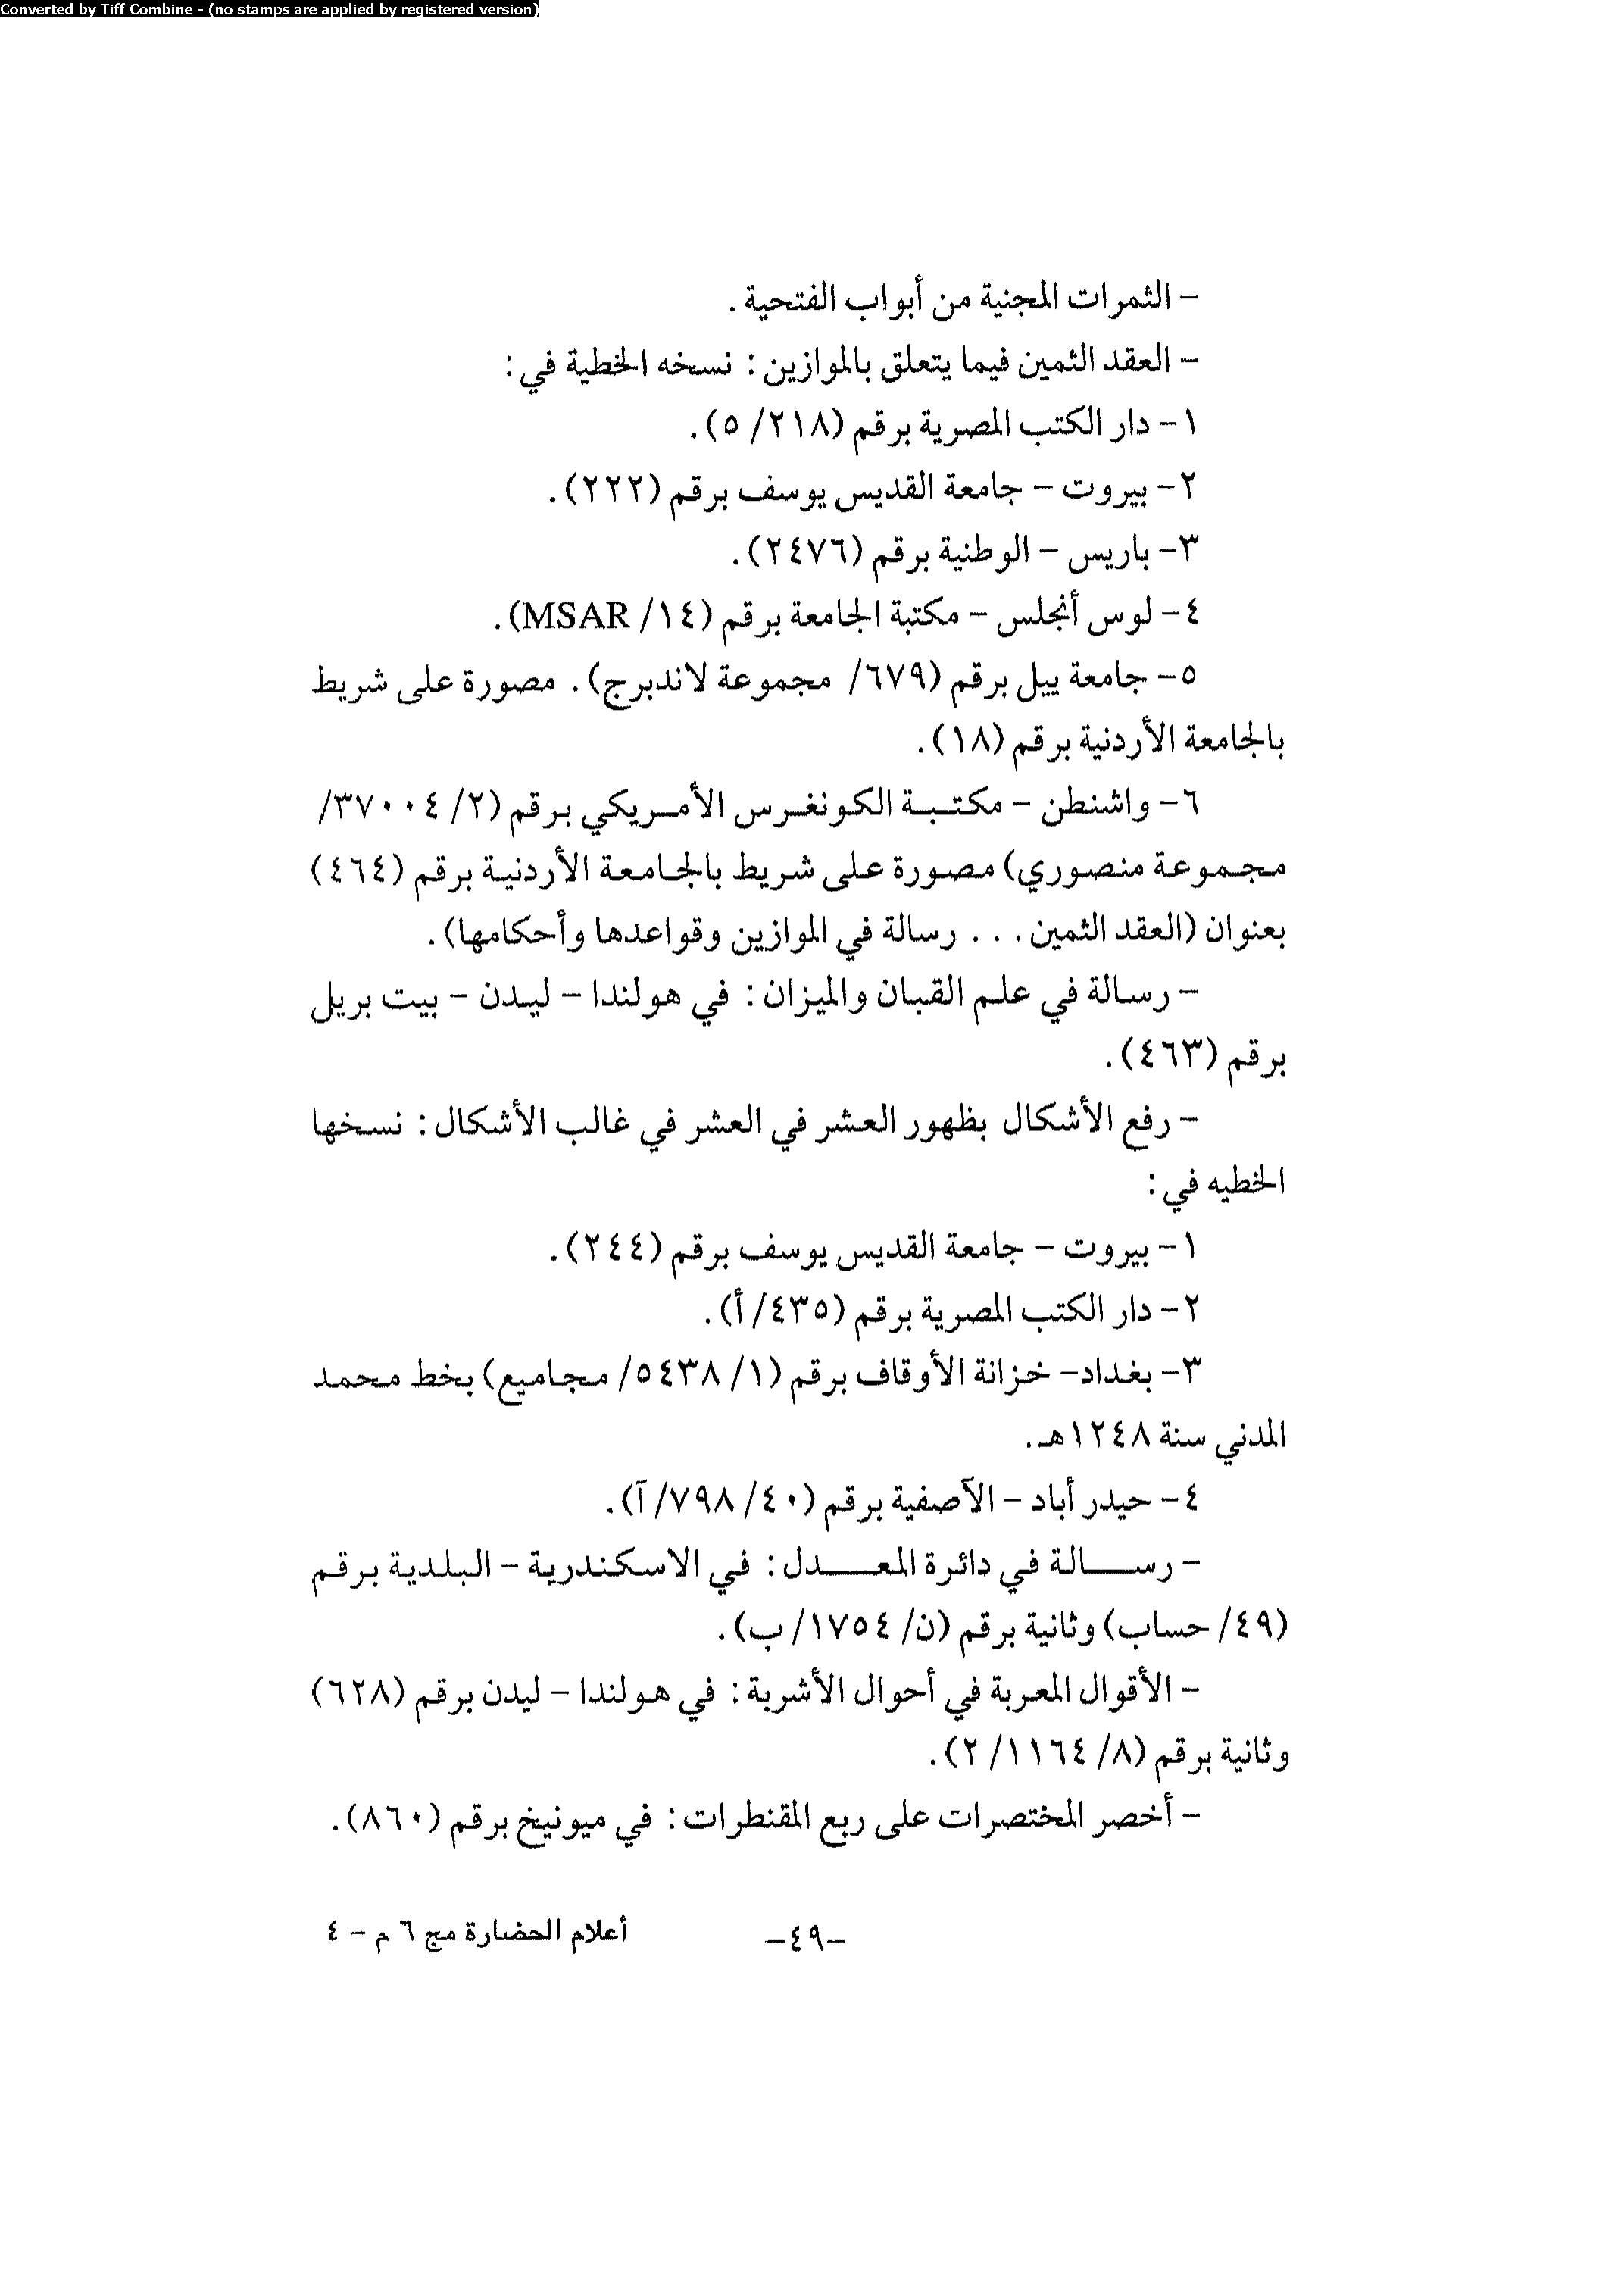 Converted by Tiff Combine - (no stamps are applied by registered version)
- الثمرات المجنية من أبواب الفتحية.
- العقد الثمين فيما يتعلق بالموازين: نسخه الخطية في:
١- دار الكتب المصرية برقم (٢١٨/ ٥).
٢- بيروت - جامعة القديس يوسف برقم (٢٢٢).
٣- باريس - الوطنية برقم (٢٤٧٦).
٤- لوس أنجلس - مكتبة الجامعة برقم (١٤/ MSAR).
٥- جامعة ييل برقم (٦٧٩/ مجموعة لاندبرج). مصورة على شريط
بالجامعة الأردنية برقم (١٨).
٦- واشنطن - مكتبة الكونغرس الأمريكي برقم (٢/ ٣٧٠٠٤/
مجموعة منصوري) مصورة على شريط بالجامعة الأردنية برقم (٤٦٤)
بعنوان (العقد الثمين... رسالة في الموازين وقواعدها وأحكامها).
- رسالة في علم القبان والميزان: في هولندا - ليدن - بيت بريل
برقم (٤٦٣).
- رفع الأشكال بظهور العشر في العشر في غالب الأشكال: نسخها
الخطيه في:
١- بيروت - جامعة القديس يوسف برقم (٢٤٤).
٢- دار الكتب المصرية برقم (٤٣٥/ أ).
٣- بغداد- خزانة الأوقاف برقم (١/ ٥٤٣٨/ مجاميع) بخط محمد
المدني سنة ١٢٤٨هـ.
٤- حيدر أباد - الآصفية برقم (٤٠/ ٧٩٨/ آ).
- رسالة في دائرة المعدل: في الاسكندرية - البلدية برقم
(٤٩/ حساب) وثانية برقم (ن/ ١٧٥٤/ ب).
- الأقوال المعربة في أحوال الأشربة: في هولندا - ليدن برقم (٦٢٨)
وثانية برقم (٨/ ١١٦٤/ ٢).
- أخصر المختصرات على ربع المقنطرات: في ميونيخ برقم (٨٦٠).
-٤٩- أعلام الحضارة مج ٦ م - ٤